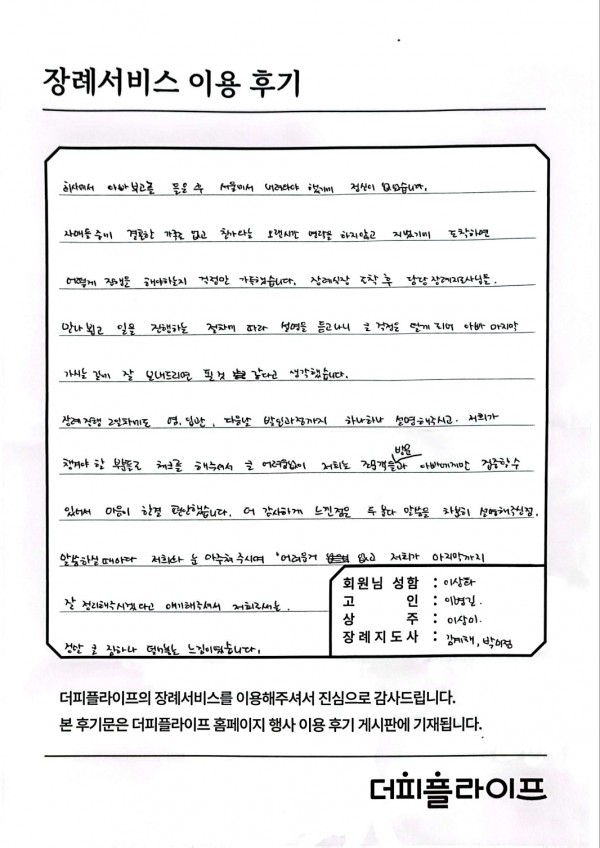 장례서비스 이용 후기
회사에서 아빠 부고를 들은 후 서울에서 내려와야 했기에 정신이 없었습니다.
자매들 중에 결혼한 가족은 없고 친가와는 오랜시간 연락을 하지않고 지냈기에 도착하면
어떻게 진행을 해야하는지 걱정만 가득했습니다. 장례식장 도착 후 담당 장례지도사님들
만나 뵙고 일을 진행하는 절차에 따라 설명을 듣고나니 큰 걱정을 덜게 되어 아빠 마지막
가시는 길에 잘 보내드리면 될 것 같다고 생각했습니다.
장례 진행 2일차에도 염, 입관, 다음날 발인과정까지 하나하나 설명해주시고. 저희가
챙겨야 할 부분들로 체크를 해주셔서 큰 어려움없이 저희는 조문객들 방문과 아빠에게만 집중할 수
있어서 마음이 한결 편안했습니다. 더 감사하게 느낀점은 두 분다 말씀을 차분히 설명해주신점.
말씀하실 때마다 저희와 눈 마주쳐 주시며 "어려운거 없고 저희가 마지막까지
잘 정리해주시겠다고 얘기해주셔서 저희로서는
정말 큰 짐하나 덜어놓는 느낌이었습니다.
회원님 성함 :
고 인 : 이병길
상 주 : 이상미
장례지도사 :
더피플라이프의 장례서비스를 이용해주셔서 진심으로 감사드립니다.
본 후기문은 더피플라이프 홈페이지 행사 이용 후기 게시판에 기재됩니다.
더피플라이프